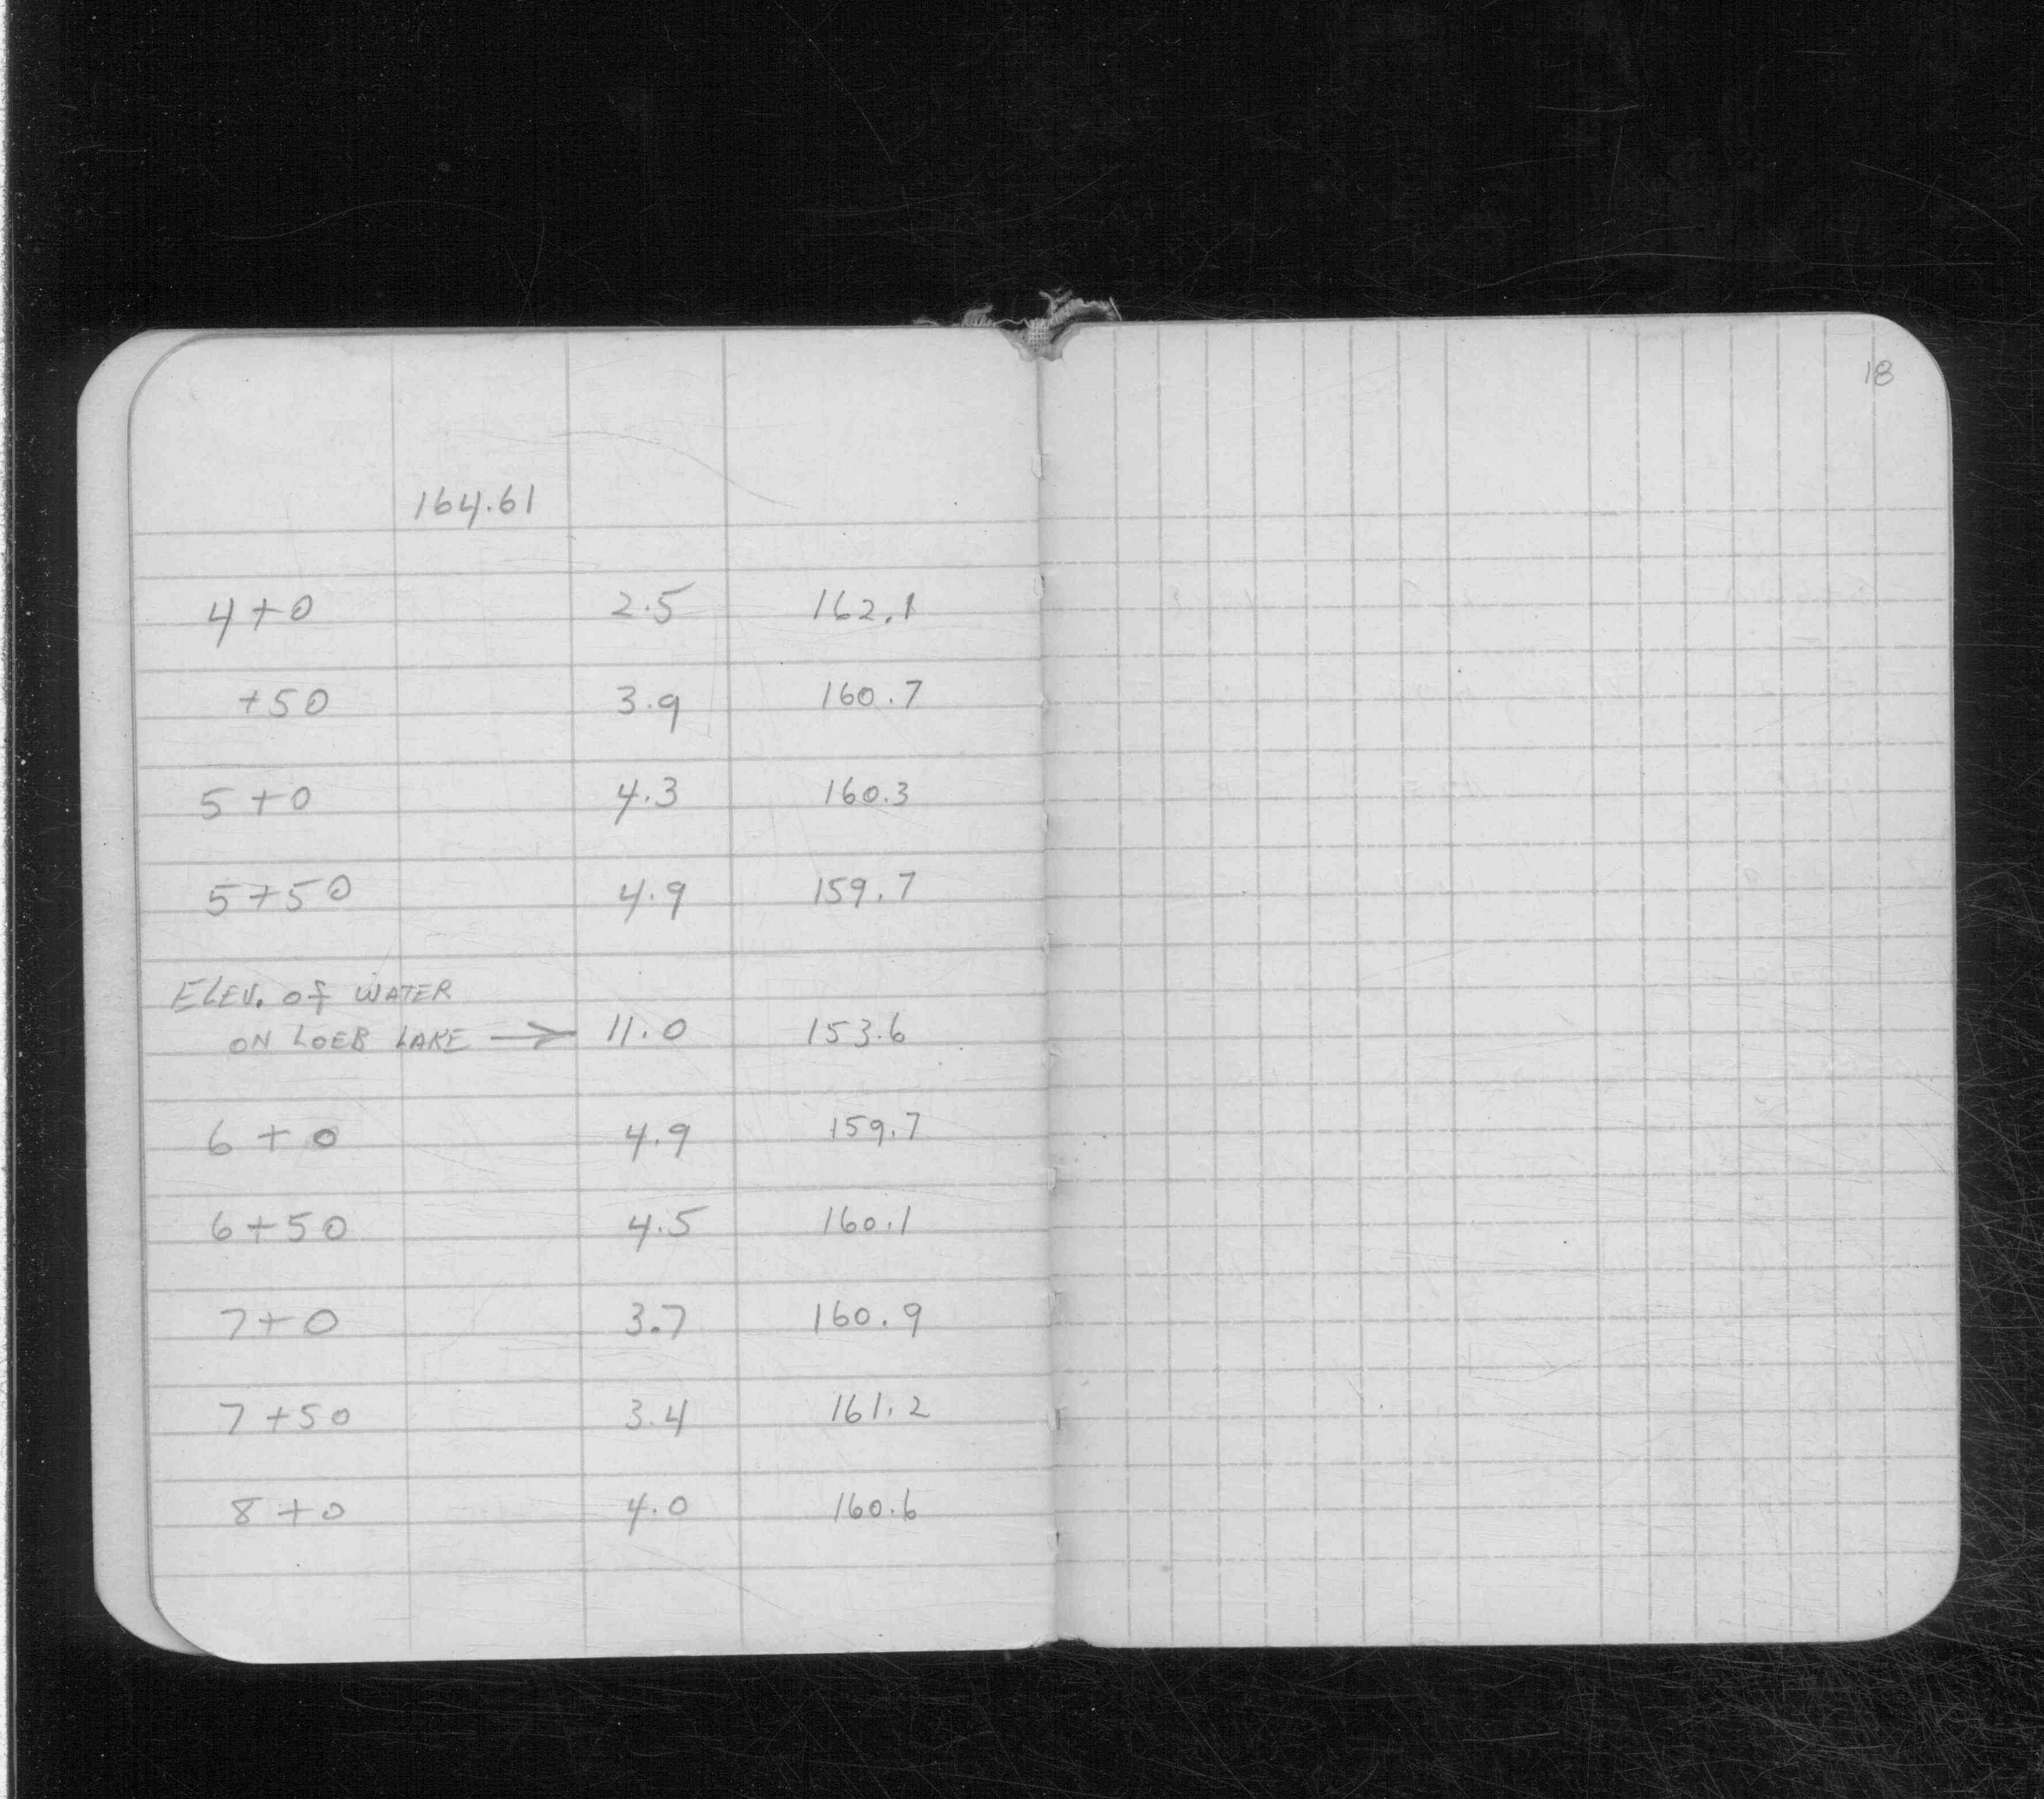 18
164.61
4+0 2.5 162.1
+50 3.9 160.7
5+0 4.3 160.3
5+50 4.9 159.7
ELEV. of WATER
ON LOEB LAKE → 11.0 153.6
6+0 4.9 159.7
6+50 4.5 160.1
7+0 3.7 160.9
7+50 3.4 161.2
8+0 4.0 160.6